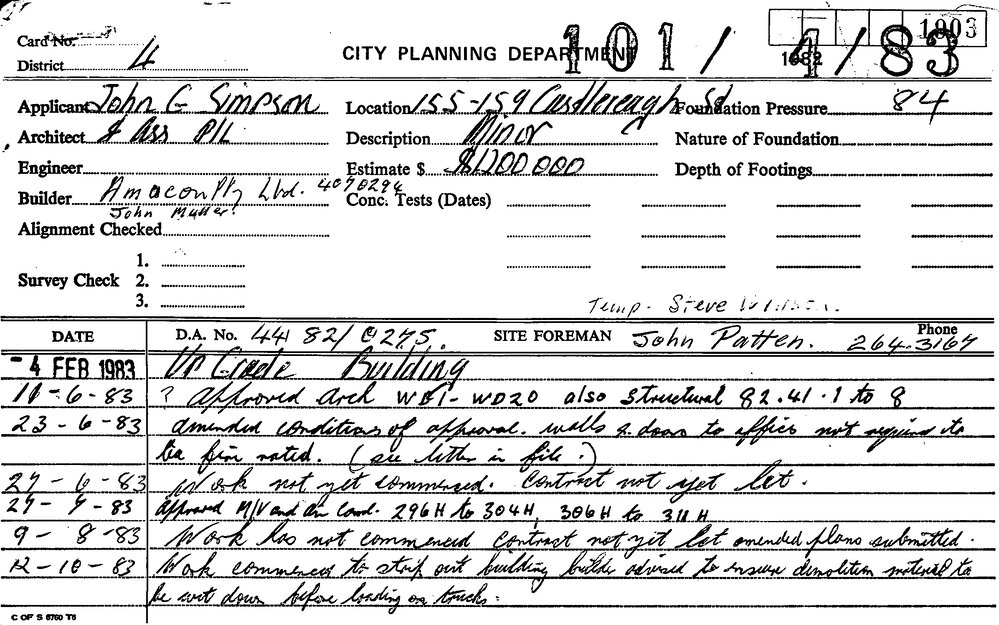 Card No.
District 4
CITY PLANNING DEPARTMENT 101 / 4/83
1903
1682
Applicant John G Simpson Location 155-159 Castlereagh St Foundation Pressure 84
Architect & Ass P/L Description Minor Nature of Foundation
Engineer Estimate $ $1200 000 Depth of Footings
Builder Amacon Pty Ltd. 4070294 Conc. Tests (Dates)
John Muller.
Alignment Checked
1.
Survey Check 2.
3.
Temp. Steve
DATE D.A. No. 44 82/0275. SITE FOREMAN John Patten. Phone 264.3167
-4 FEB 1983 Up Grade Building
11-6-83 ? approved arch WD1-WD20 also structural 82.41.1 to 8
23-6-83 amended conditions of approval. walls & doors to offices not required to
be fire rated. (see letter in file.)
27-6-83 Work not yet commenced. Contract not yet let.
27-7-83 approved M/V and air cond. 296H to 304H, 306H to 311H
9-8-83 Work has not commenced contract not yet let amended plans submitted.
12-10-83 Work commenced to strip out building builder advised to ensure demolition material to
be wet down before loading on trucks.
C OF S 6760 T6